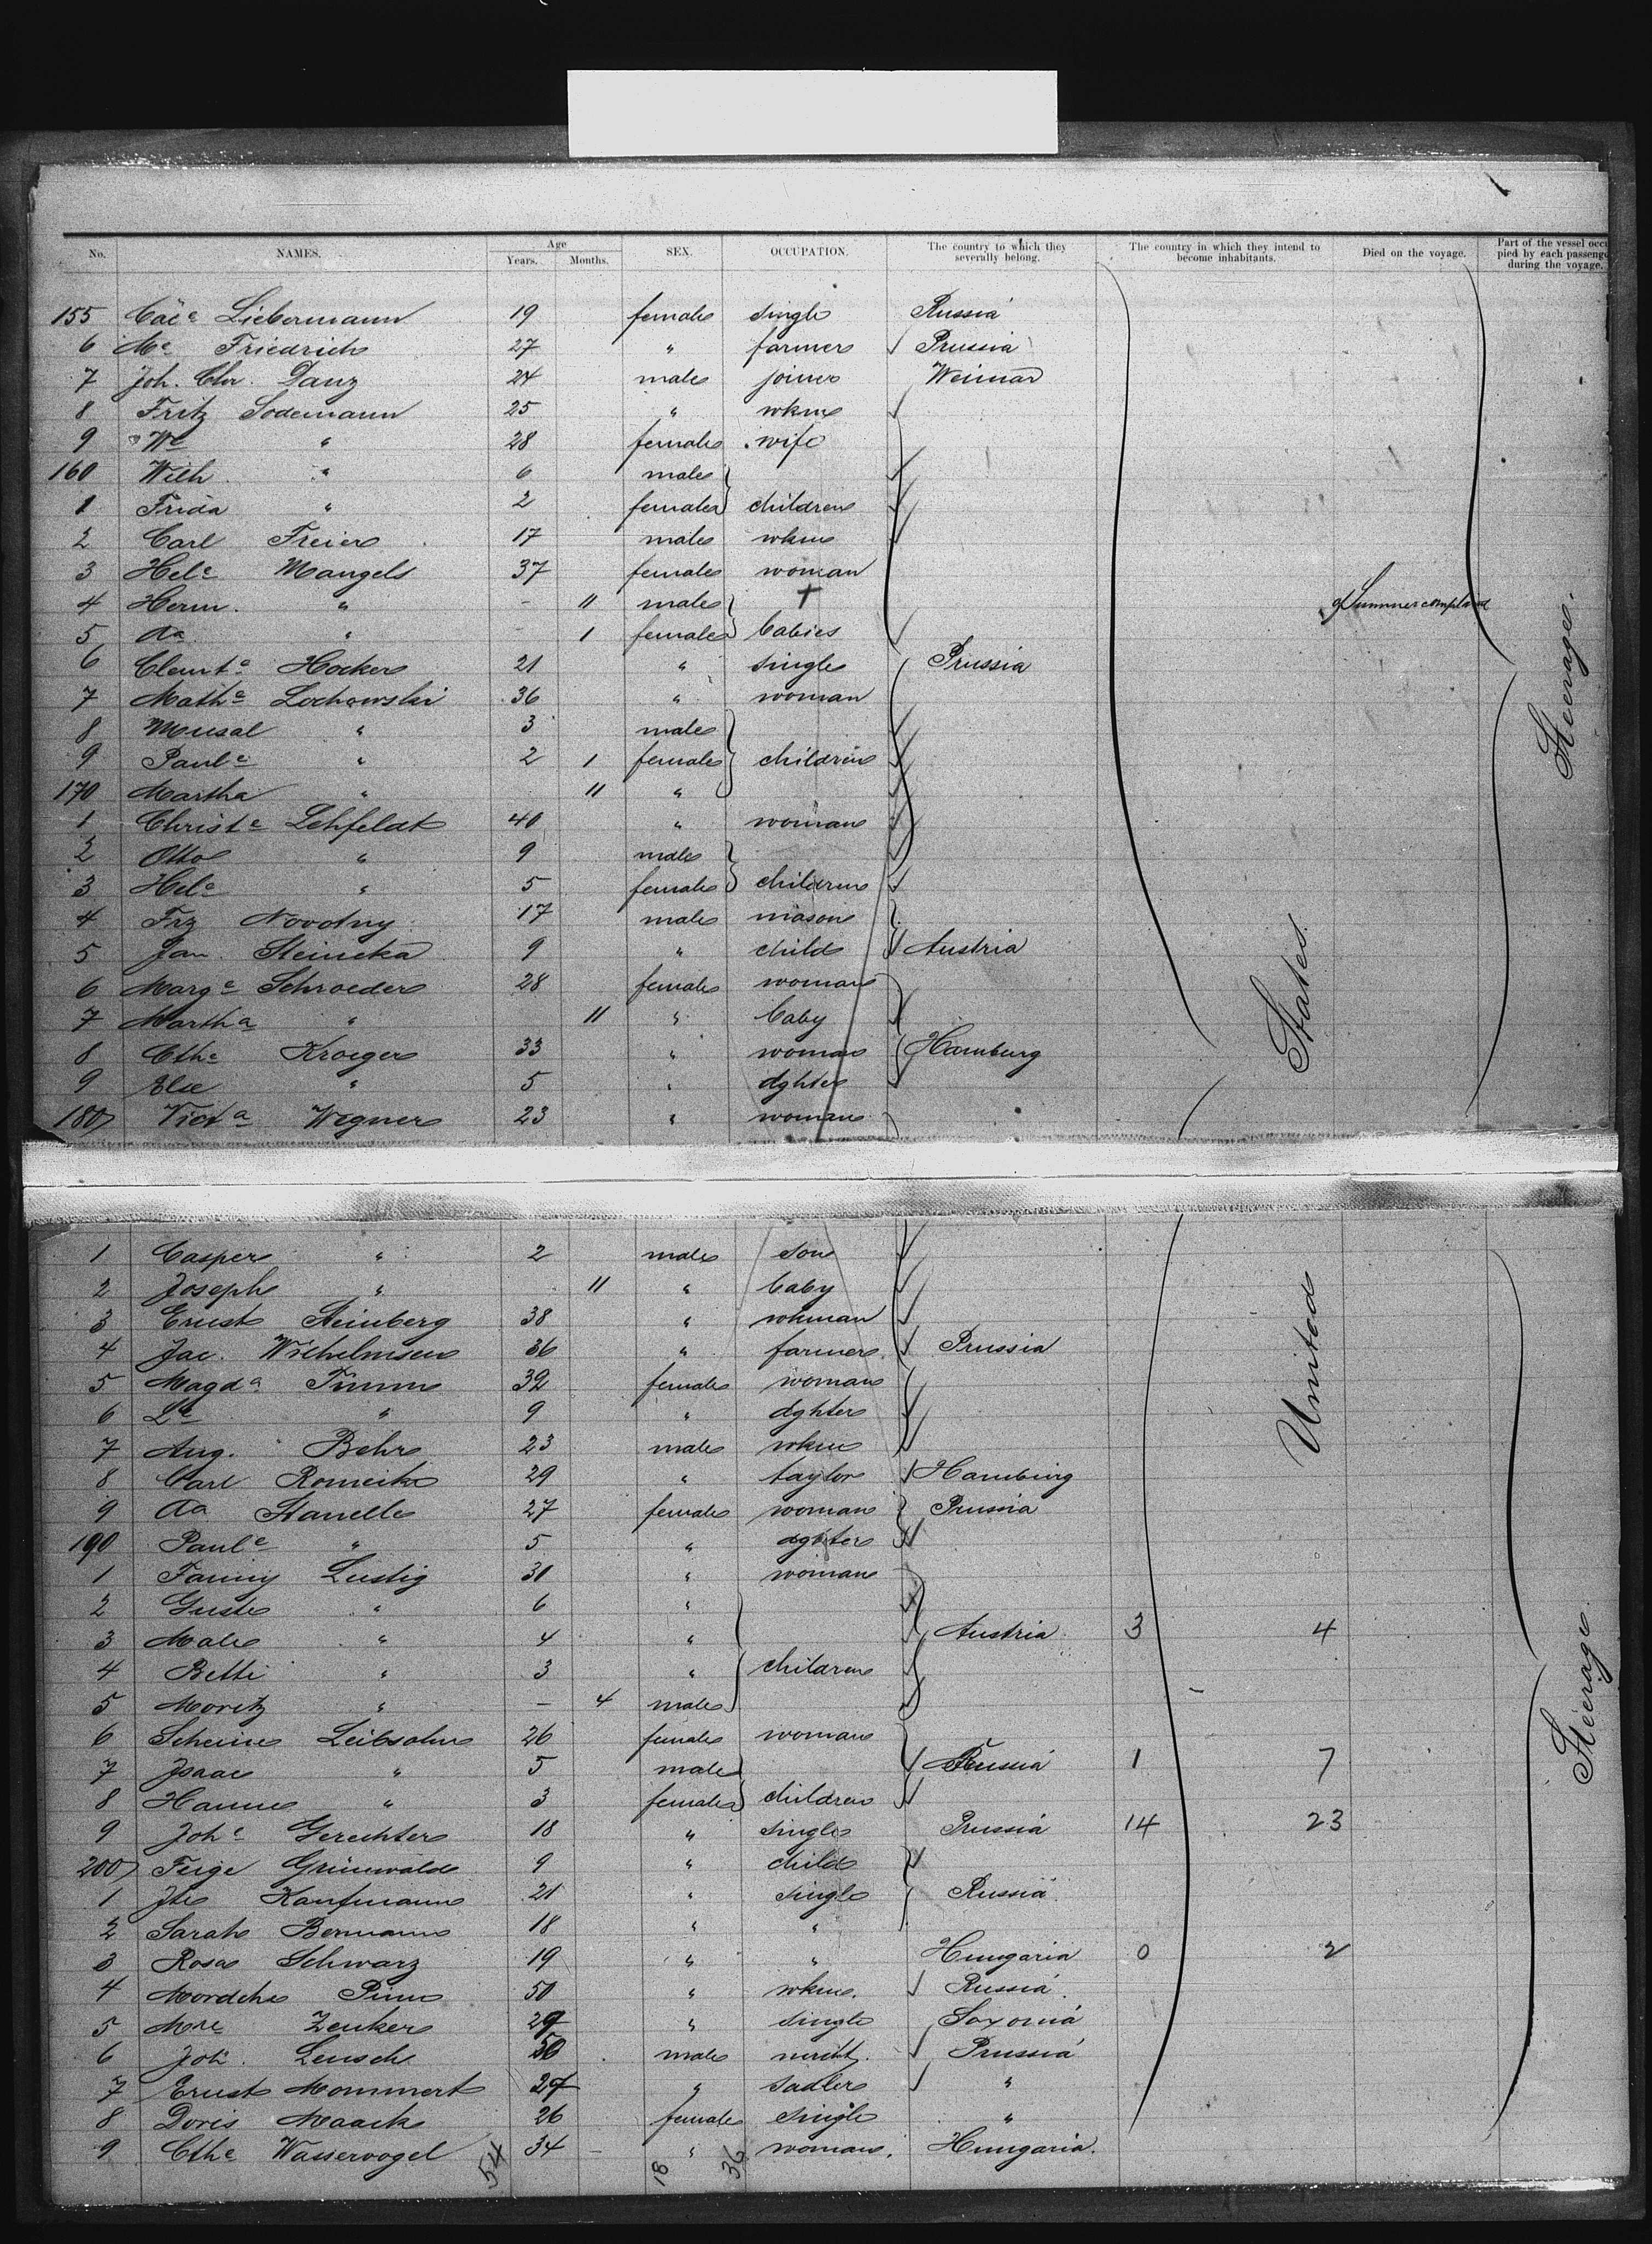 No. NAMES. Age Years. Months. SEX. OCCUPATION. The country to which they severally belong. The country in which they intend to become inhabitants. Died on the voyage. Part of the vessel occu pied by each passeng during the voyage.
155 Cäce Liebermann 19 female single Russia
6 Me Friedrich 27 " farmer Prussia
7 Joh. Chr. Danz 24 male joiner Weimar
8 Fritz Sodemann 25 " wkm
9 We " 28 female wife
160 Wilh. " 6 male
1 Frida " 2 female children
2 Carl Freier 17 male wkm
3 Hele Mangels 37 female woman
4 Herm. " - 11 male + of Summercomplaint
5 Aa " 1 female babies
6 Hocker 21 " single Prussia
7 Mathe Lochowski 36 " woman
8 " 3 male
9 Paule " 2 1 female children
170 Martha " 11 "
1 Christe Lehfeldt 40 " woman
2 Otto " 9 male
3 Hele " 5 female children
4 Frz Novotny 17 male mason
5 Jan Steineka 9 " child Austria
6 Marge Schroeder 28 female woman
7 Martha " 11 " baby
8 Cthe Kroeger 33 " woman Hamburg
9 Else " 5 " dghter
180 Victa Wegner 23 " woman
Steerage.
States
1 Casper " 2 male son
2 Joseph " 11 " baby
3 Ernst Steinberg 38 " wkman
4 Jac. Wilhelmsen 36 " farmer Prussia
5 Magda Timm 32 female woman
6 Le " 9 " dghter
7 Aug. Behr 23 male wkm
8 Carl Romeike 29 " taylor Hamburg
9 Aa Stanelle 27 female woman Prussia
190 Paule " 5 " dghter
1 Fanny Lustig 31 " woman
2 Guste " 6 "
3 Male " 4 " Austria 3 4
4 Betti " 3 " children
5 Moritz " - 4 male
6 Scheine Leibsohn 26 female woman
7 Isaac " 5 male Russia 1 7
8 Hanne " 3 female children
9 Johe Gerechter 18 " single Prussia 14 23
200 Feige Grünwald 9 " child
1 Kaufmann 21 " single Russia
2 Sarah Bermann 18 " "
3 Rosa Schwarz 19 " " Hungaria 0 2
4 Mordche 50 " wkm. Russia
5 Mre Zenker 29 " single Saxonia
6 Joh. Lensch 50 male mcht. Prussia
7 Ernst Mommert 27 " sadler "
8 Doris Maack 26 female single "
9 Cthe Wasservogel 34 " woman. Hungaria.
54 18 36
United
Steerage